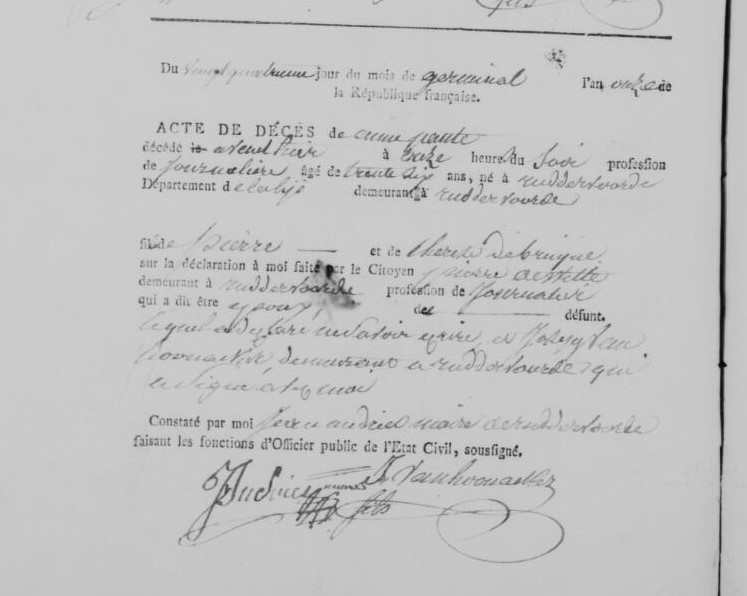 fils
Du vingt quatrieme jour du mois de germinal l'an onze de
la République française.
ACTE DE DÉCÈS de anne pante
décédé le avent hier à onze heure du Soir profession
de Journaliere, âgé de trente six ans, né à ruddervoorde
Département de la lije demeurant à ruddervoorde
fils de pierre — et de therese debruyne
sur la déclaration à moi faite par le Citoyen pierre
demeurant à ruddervoorde profession de Journalier
qui a dit être epoux de — défunt.
lequel a declaré ne Savoir ecrire, et Joseph Van
hoonacker, demeurant a ruddervoorde qui
a Signé avec moi
Constaté par moi Jean andries maire de ruddervoorde
faisant les fonctions d'Officier public de l'Etat Civil, soussigné.
J Andries maire J Vanhoonacker
fils